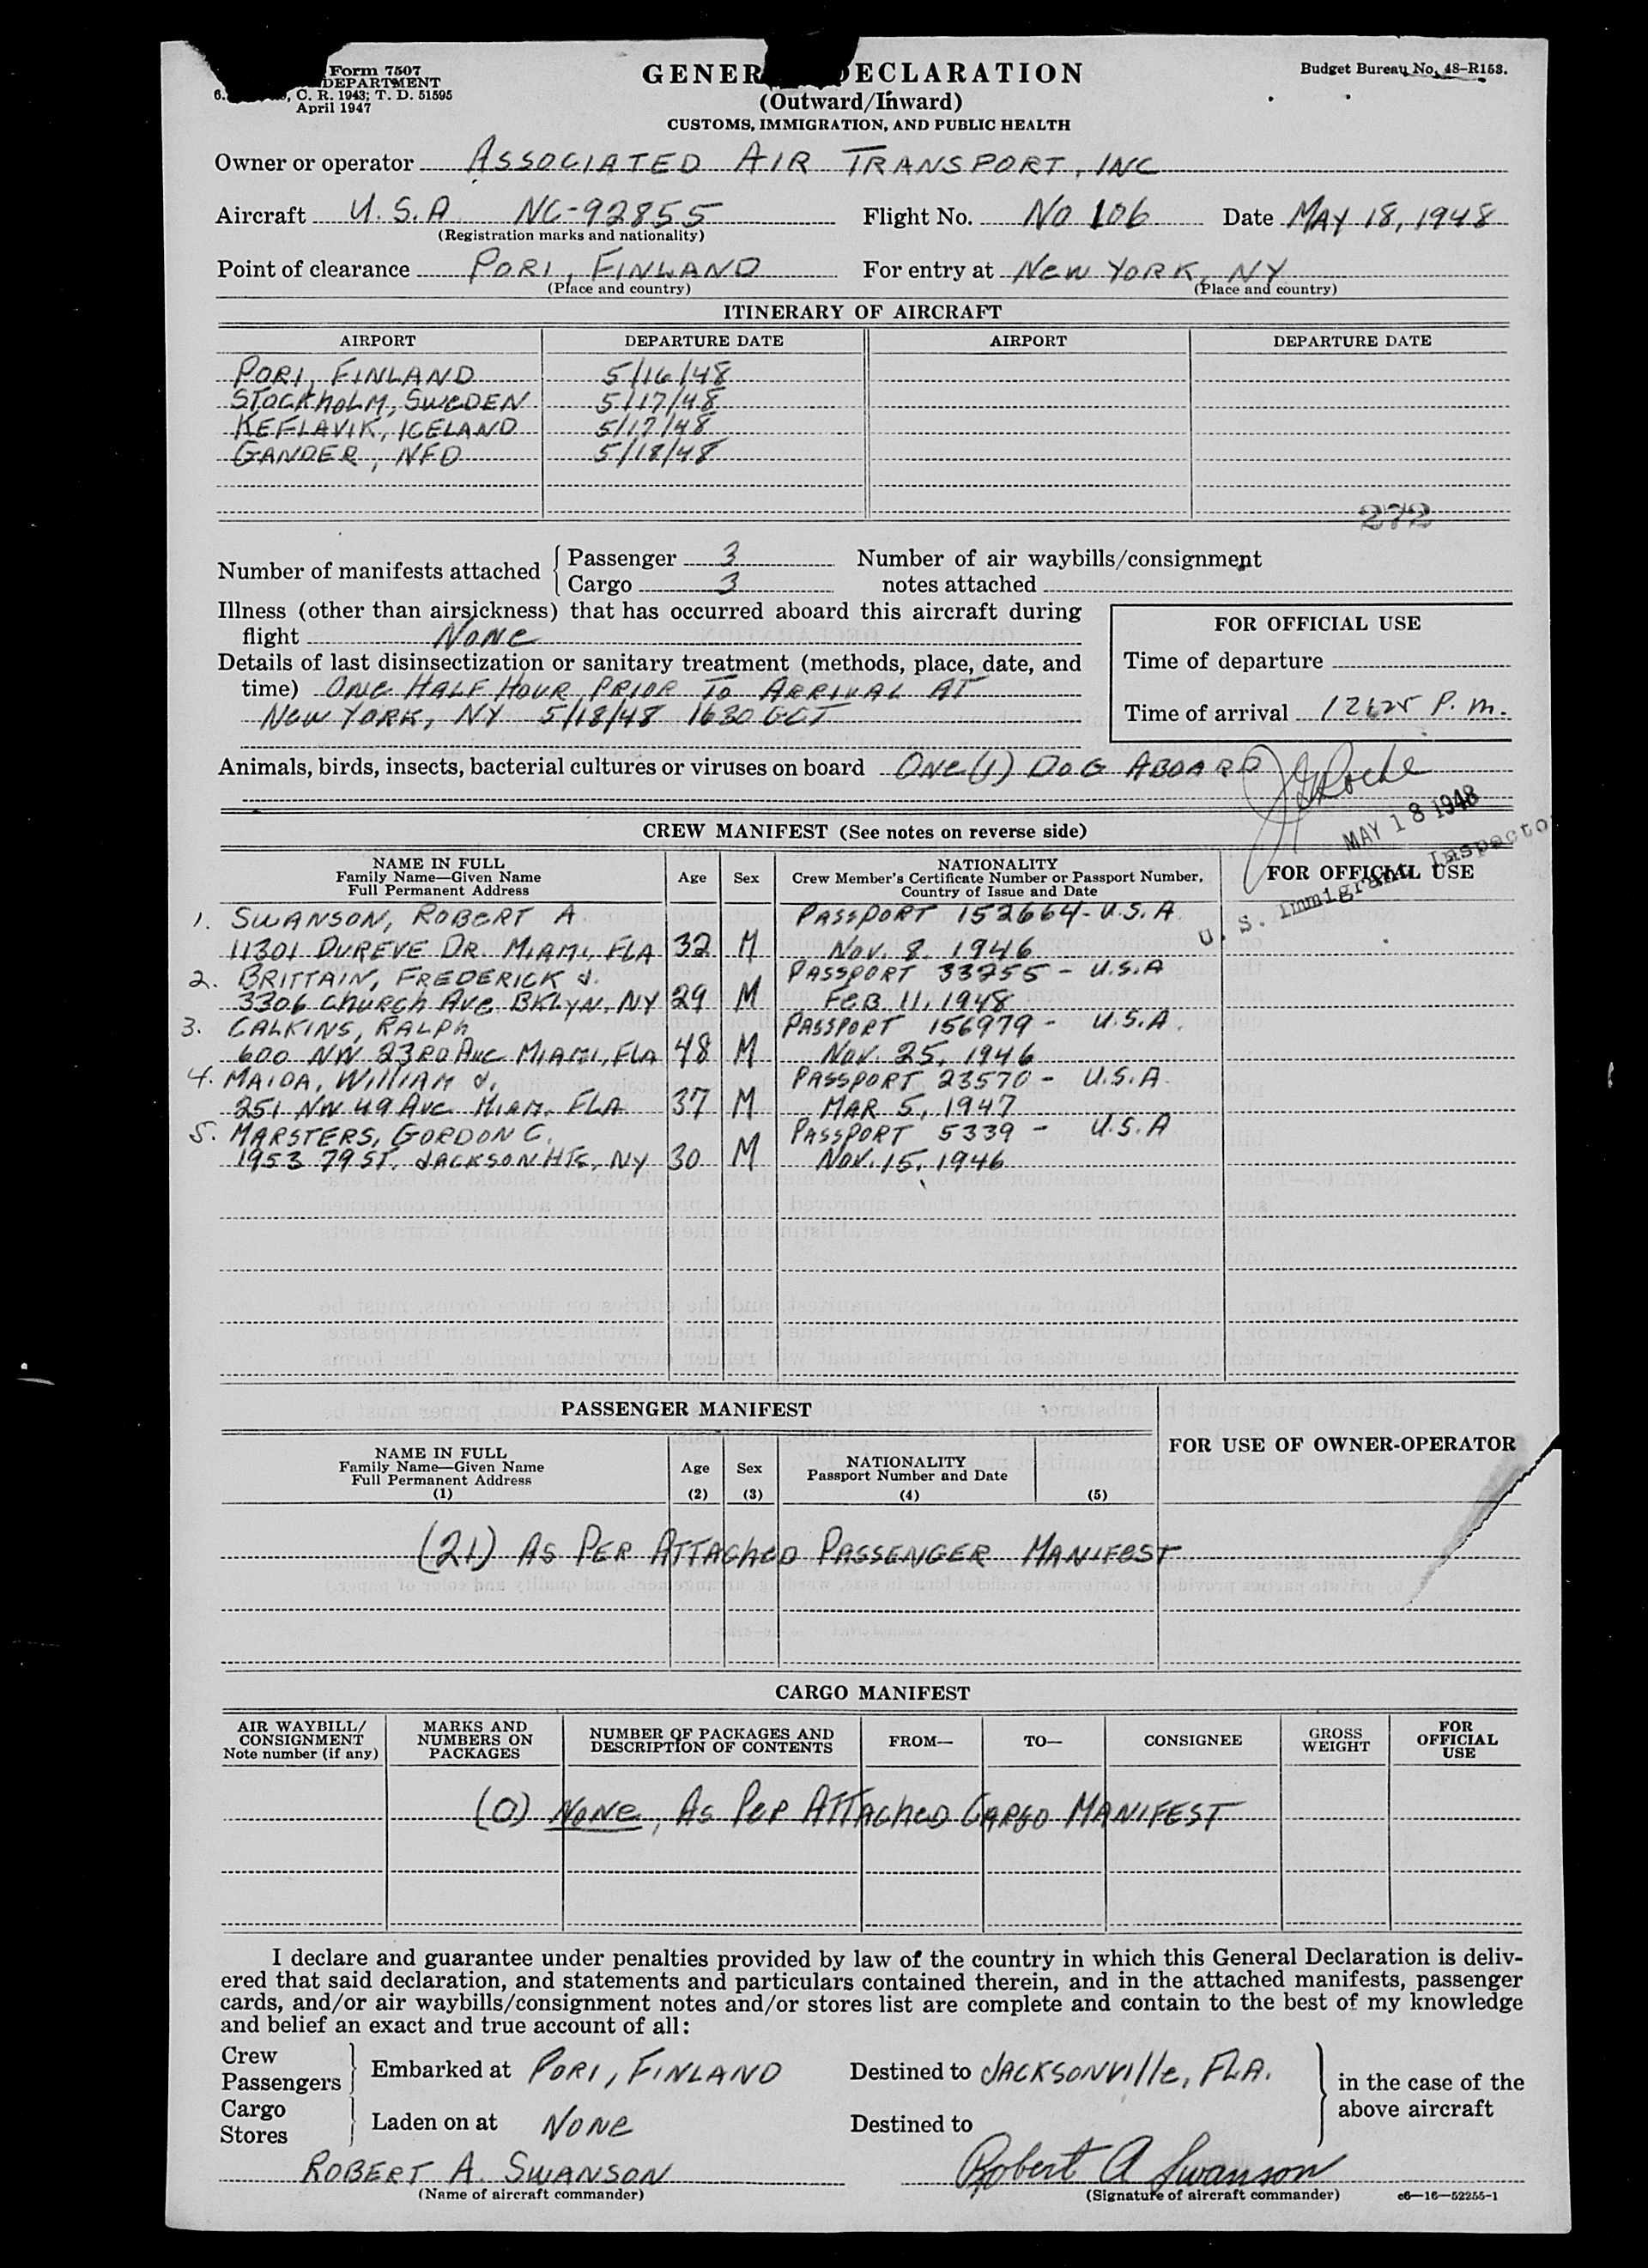 Form 7507
DEPARTMENT
C. R. 1943; T. D. 51595
April 1947
Budget Bureau No. 48-R153.
GENER DECLARATION
(Outward/Inward)
CUSTOMS, IMMIGRATION, AND PUBLIC HEALTH
Owner or operator ASSOCIATED AIR TRANSPORT, INC
Aircraft U.S.A NC-92855 Flight No. NO 106 Date MAY 18, 1948
(Registration marks and nationality)
Point of clearance PORI, FINLAND For entry at NEW YORK, NY
(Place and country) (Place and country)
ITINERARY OF AIRCRAFT
AIRPORT DEPARTURE DATE AIRPORT DEPARTURE DATE
PORI, FINLAND 5/16/48
STOCKHOLM, SWEDEN 5/17/48
KEFLAVIK, ICELAND 5/17/48
GANDER, NFD 5/18/48
272
Number of manifests attached Passenger 3 Number of air waybills/consignment
Cargo 3 notes attached
Illness (other than airsickness) that has occurred aboard this aircraft during
flight NONE
Details of last disinsectization or sanitary treatment (methods, place, date, and
time) ONE HALF HOUR PRIOR TO ARRIVAL AT
NEW YORK, NY 5/18/48 1630 GCT
FOR OFFICIAL USE
Time of departure
Time of arrival P.m.
Animals, birds, insects, bacterial cultures or viruses on board ONE (1) DOG ABOARD
MAY 18 1948
U. S. Immigrant Inspector
CREW MANIFEST (See notes on reverse side)
NAME IN FULL
Family Name—Given Name
Full Permanent Address
Age Sex
NATIONALITY
Crew Member's Certificate Number or Passport Number,
Country of Issue and Date
FOR OFFICIAL USE
1. SWANSON, ROBERT A PASSPORT 152664 - U.S.A
11301 DUREVE DR. MIAMI, FLA 32 M NOV. 8, 1946
2. BRITTAIN, FREDERICK J. PASSPORT 33255 - U.S.A
3306 CHURCH AVE BKLYN, NY 29 M FEB 11, 1948
3. CALKINS, RALPH PASSPORT 156979 - U.S.A.
600 NW 23RD AVE MIAMI, FLA 48 M NOV. 25, 1946
4. MAIDA, WILLIAM J. PASSPORT 23570 - U.S.A.
251 NW 49 AVE MIAM. FLA 37 M MAR 5, 1947
5. MARSTERS, GORDON C. PASSPORT 5339 - U.S.A
1953 79 ST. JACKSON HTS, NY 30 M NOV. 15, 1946
PASSENGER MANIFEST
FOR USE OF OWNER-OPERATOR
NAME IN FULL
Family Name—Given Name
Full Permanent Address
(1)
Age
(2)
Sex
(3)
NATIONALITY
Passport Number and Date
(4) (5)
(21) AS PER ATTACHED PASSENGER MANIFEST
CARGO MANIFEST
AIR WAYBILL/
CONSIGNMENT
Note number (if any)
MARKS AND
NUMBERS ON
PACKAGES
NUMBER OF PACKAGES AND
DESCRIPTION OF CONTENTS
FROM—
TO—
CONSIGNEE
GROSS
WEIGHT
FOR
OFFICIAL
USE
(0) NONE, AS PER ATTACHED CARGO MANIFEST
I declare and guarantee under penalties provided by law of the country in which this General Declaration is deliv-
ered that said declaration, and statements and particulars contained therein, and in the attached manifests, passenger
cards, and/or air waybills/consignment notes and/or stores list are complete and contain to the best of my knowledge
and belief an exact and true account of all:
Crew
Passengers Embarked at PORI, FINLAND Destined to JACKSONVILLE, FLA.
Cargo
Stores Laden on at NONE Destined to
in the case of the
above aircraft
ROBERT A. SWANSON Robert A Swanson
(Name of aircraft commander) (Signature of aircraft commander) c6—16—52255-1